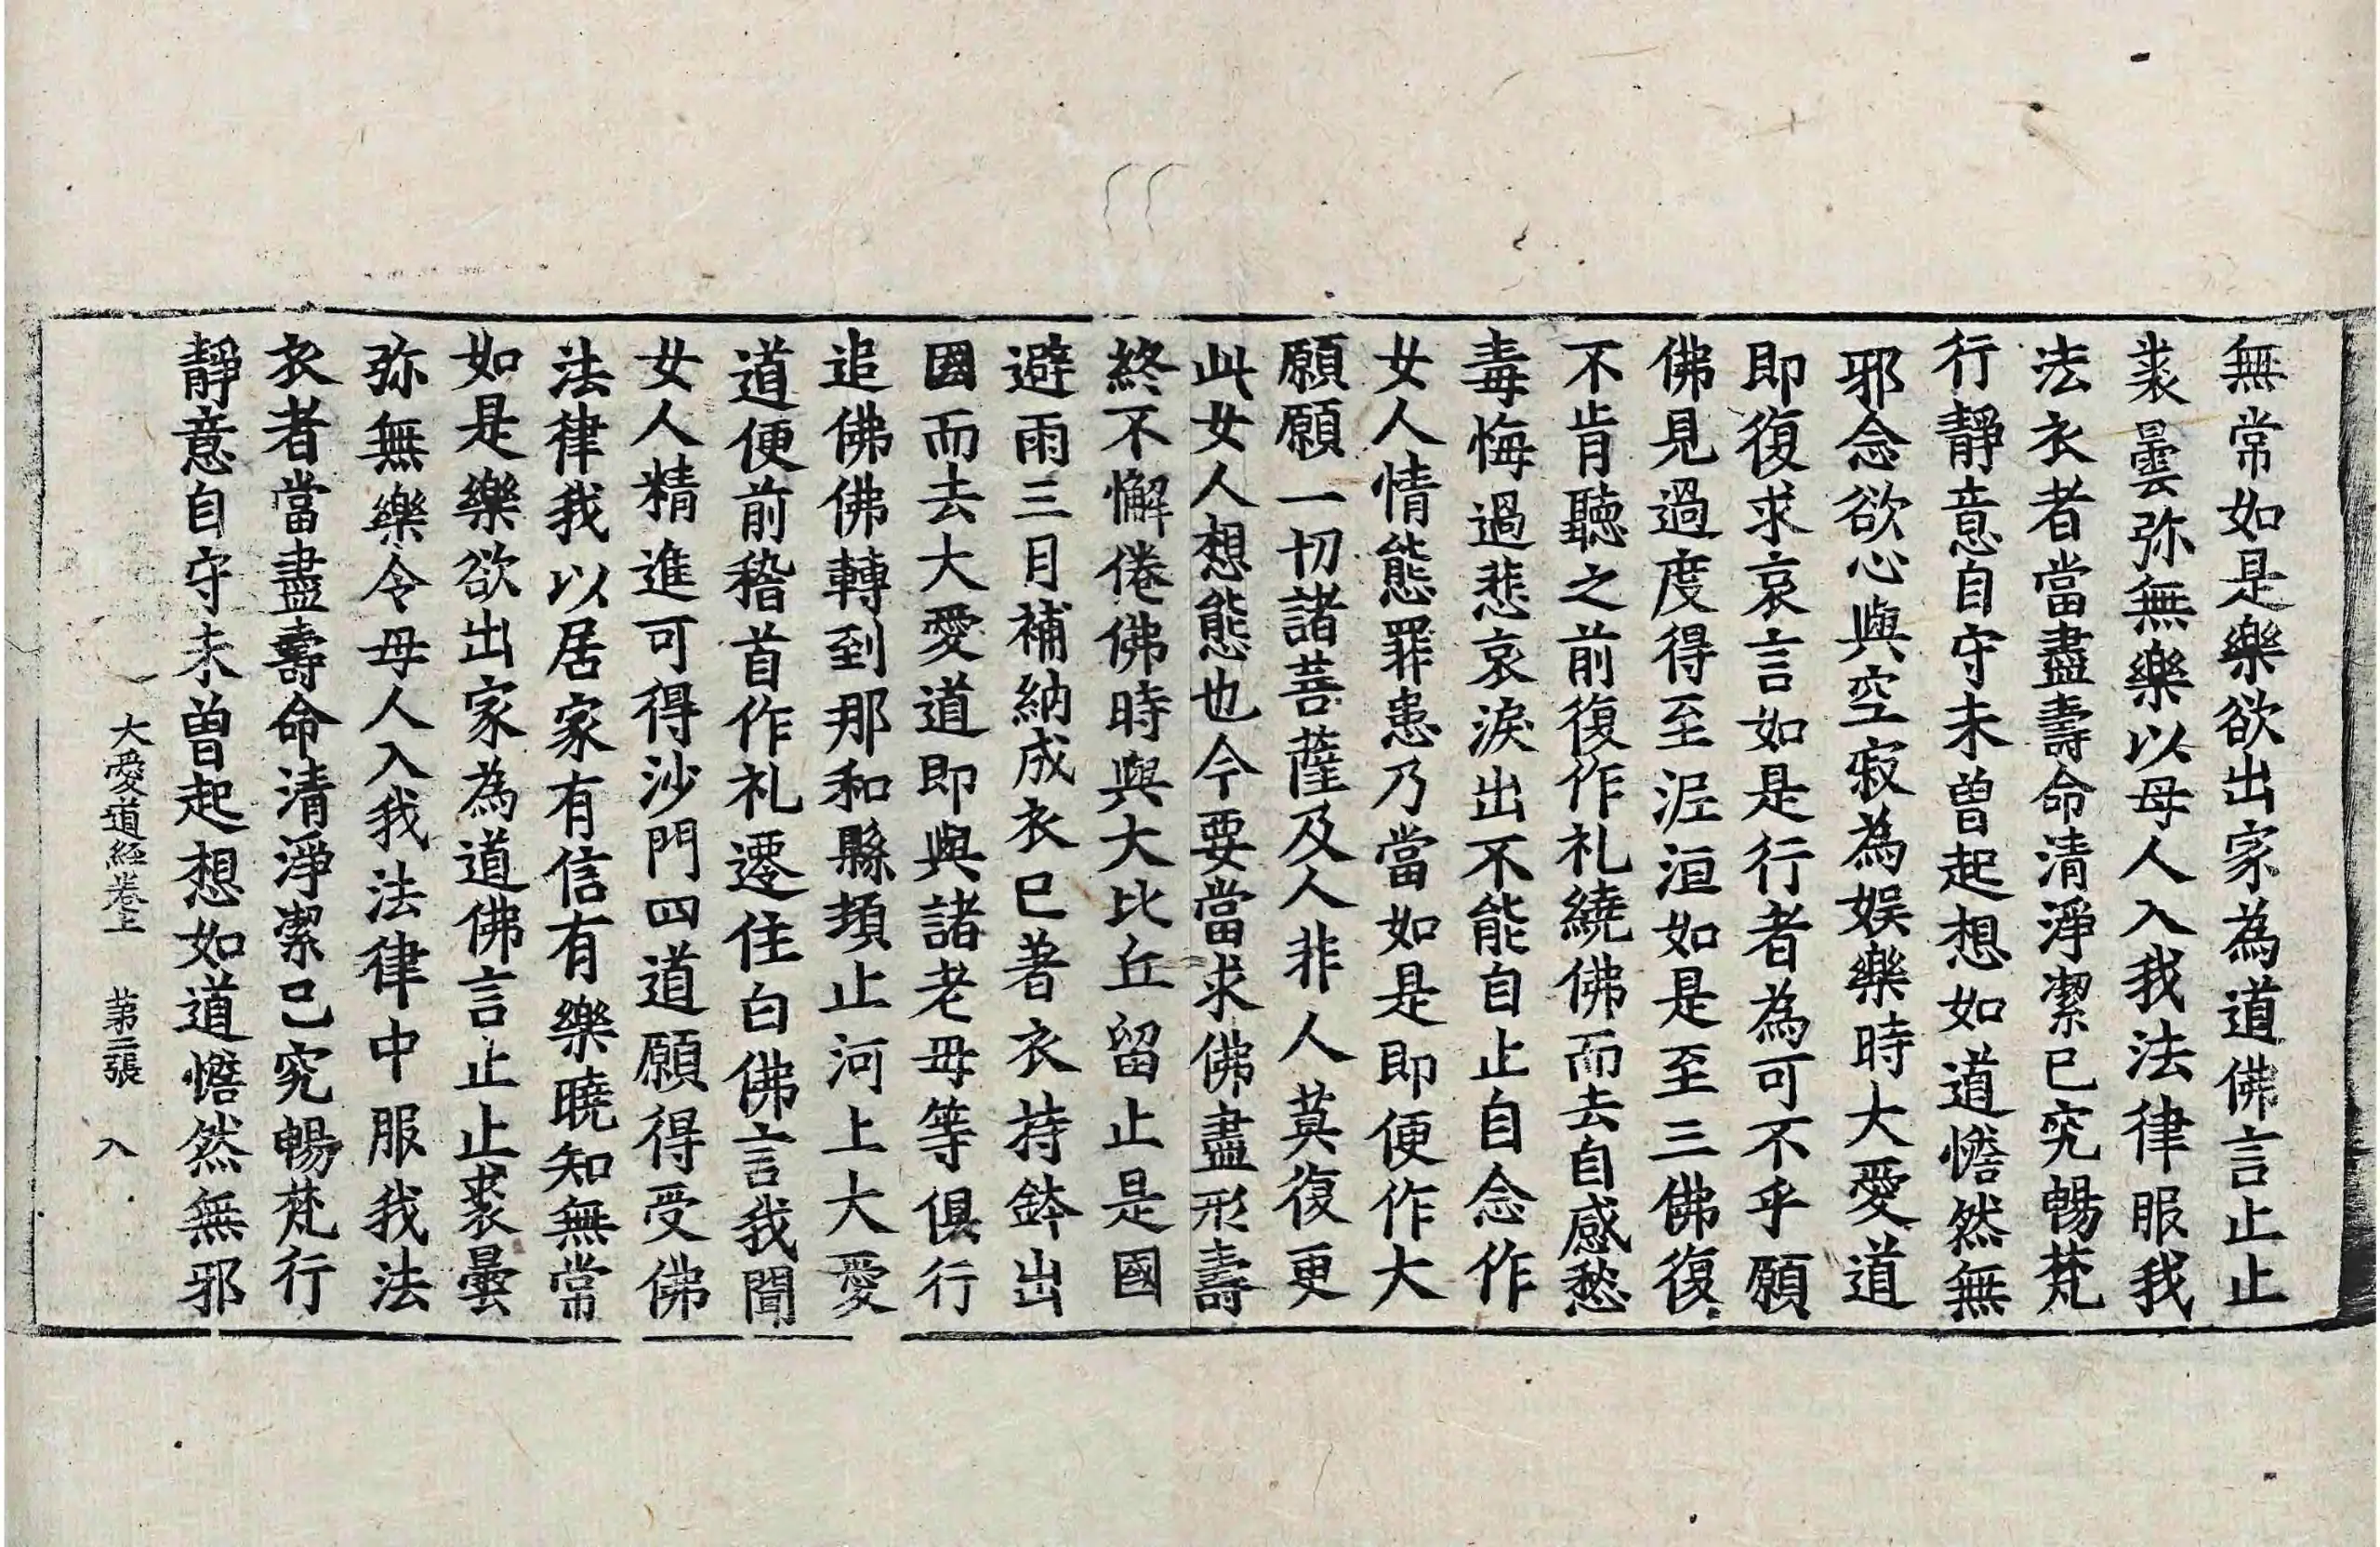 無常如是樂欲出家為道佛言止止
裘曇弥無樂以母人入我法律服我
法衣者當盡壽命清淨潔已究暢梵
行靜意自守未曾起想如道憺然無
邪念欲心與空寂為娱樂時大愛道
即復求哀言如是行者為可不乎願
佛見過度得至泥洹如是至三佛復
不肯聽之前復作礼繞佛而去自感愁
毒悔過悲哀淚出不能自止自念作
女人情態罪患乃當如是即便作大
願願一切諸菩薩及人非人莫復更
此女人想態也今要當求佛盡形壽
終不懈倦佛時與大比丘留止是國
避雨三月補納成衣已著衣持鉢出
國而去大愛道即與諸老母等俱行
追佛佛轉到那和縣頓止河上大愛
道便前稽首作礼遷住白佛言我聞
女人精進可得沙門四道願得受佛
法律我以居家有信有樂曉知無常
如是樂欲出家為道佛言止止裘曇
弥無樂令母人入我法律中服我法
衣者當盡壽命清淨潔己究暢梵行
靜意自守未曾起想如道憺然無邪
大愛道經卷上 第二張 入